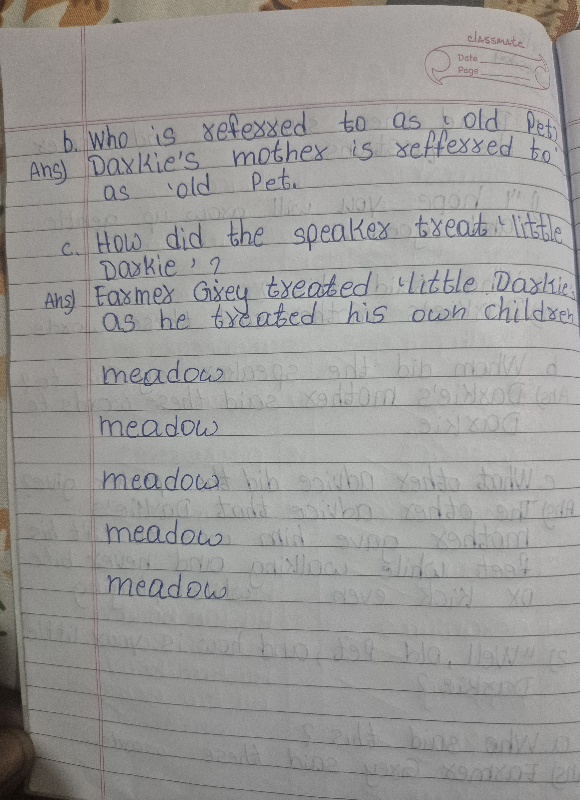 classmate
Date
Page
b. Who is referred to as 'old Pet'
Ans) Darkie's mother is refferred to
as 'old Pet.
c. How did the speaker treat 'little
Darkie'?
Ans) Farmer Grey treated 'little Darkie'
as he treated his own children
meadow
meadow
meadow
meadow
meadow